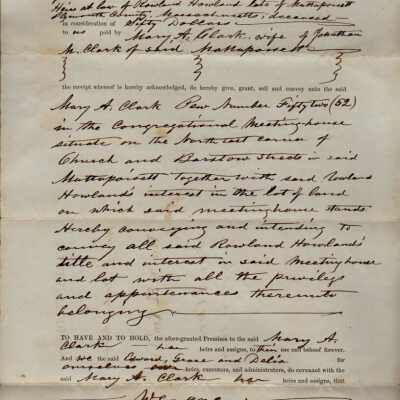 Heirs at law of Rowland Howland late of Mattapoisett
Plymouth County, Massachusetts, deceased
in consideration of Fifty Dollars
to us paid by Mary A. Clark, wife of Jonathan
M. Clark of said Mattapoisett
the receipt whereof is hereby acknowledged, do hereby give, grant, sell and convey unto the said
Mary A. Clark Pew Number Fifty two (52)
in the Congregational Meeting-house
situate on the North east corner of
Church and Barstow Streets in said
Mattapoisett Together with said Rowland
Howland's interest in the lot of land
on which said meetinghouse stands
Hereby conveying and intending to
convey all said Rowland Howland's
title and interest in said Meetinghouse
and lot with all the privileges
and appurtenances thereunto
belonging
TO HAVE AND TO HOLD, the afore-granted Premises to the said Mary A.
Clark her heirs and assigns, to their use and behoof forever.
And we the said Edward, Grace and Delia for
ourselves our heirs, executors, and administrators, do covenant with the
said Mary A. Clark her heirs and assigns, that